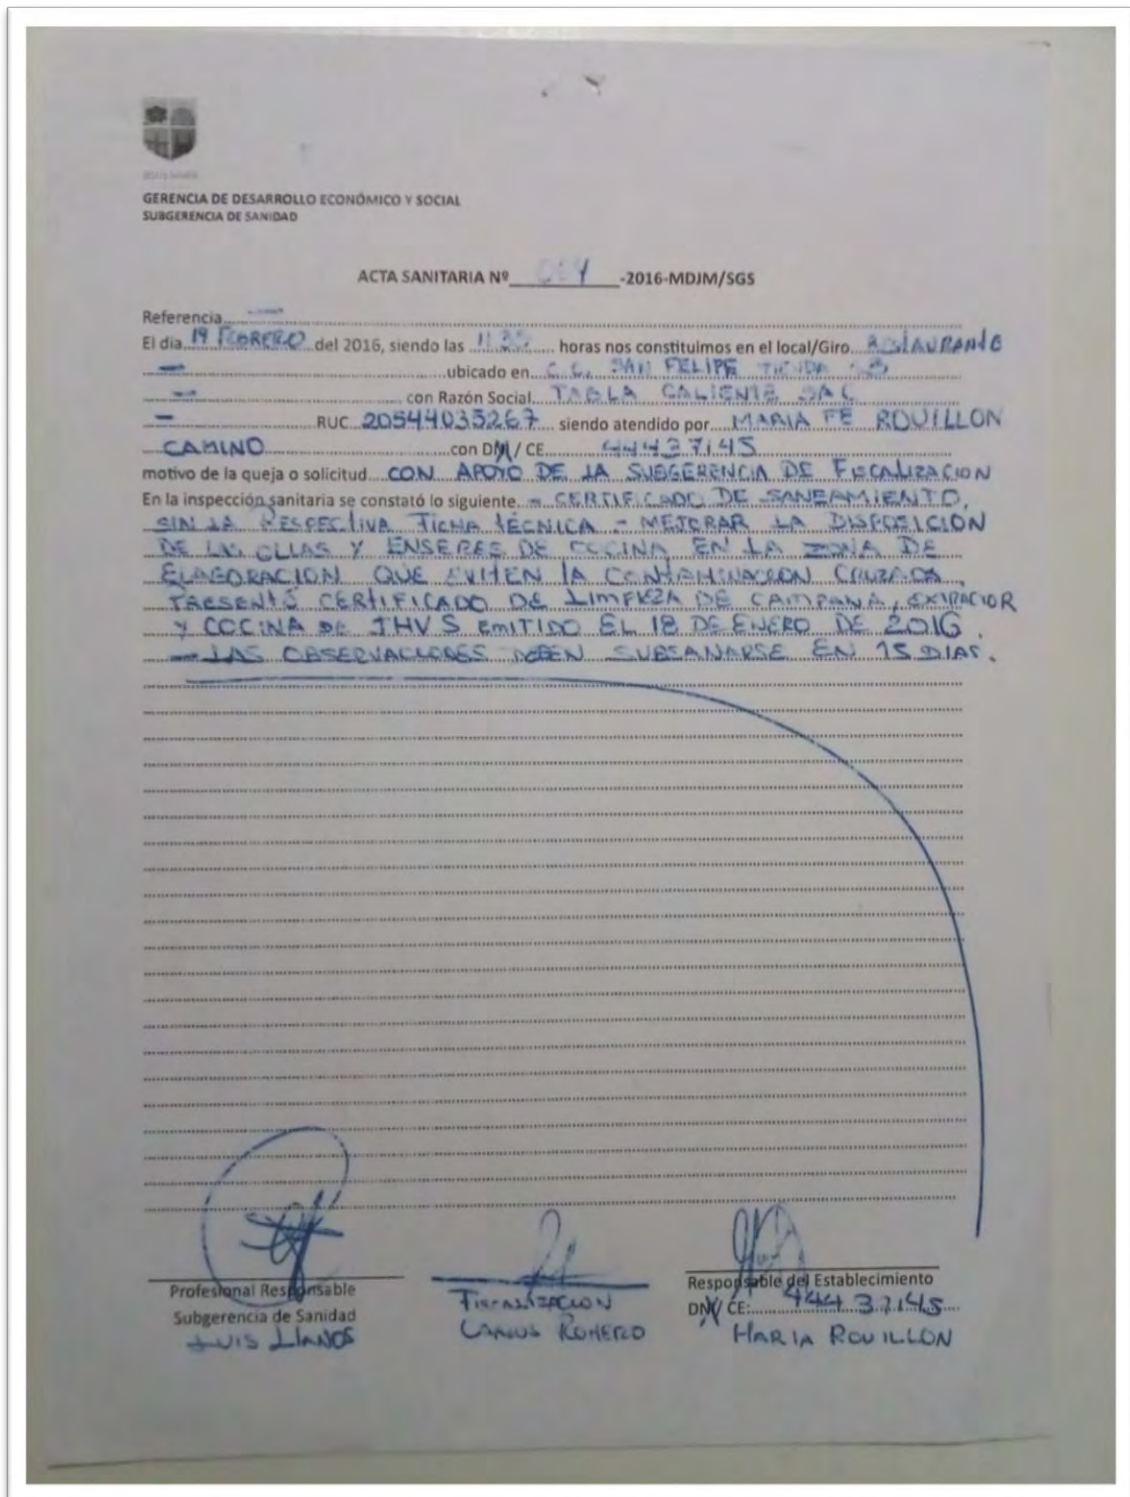 JESÚS MARÍA
GERENCIA DE DESARROLLO ECONÓMICO Y SOCIAL
SUBGERENCIA DE SANIDAD
ACTA SANITARIA Nº -2016-MDJM/SGS
Referencia
El día 19 FEBRERO del 2016, siendo las horas nos constituimos en el local/Giro RESTAURANTE
— ubicado en C.C. SAN FELIPE TIENDA
— con Razón Social TABLA CALIENTE SAC
— RUC 20544035267 siendo atendido por MARIA FE ROUILLON
CAMINO con DNI / CE 44437145
motivo de la queja o solicitud CON APOYO DE LA SUBGERENCIA DE FISCALIZACION
En la inspección sanitaria se constató lo siguiente. - CERTIFICADO DE SANEAMIENTO,
SIN LA RESPECTIVA FICHA TÉCNICA - MEJORAR LA DISPOSICION
DE LAS OLLAS Y ENSERES DE COCINA EN LA ZONA DE
ELABORACION QUE EVITEN LA CONTAMINACION CRUZADA,
PRESENTÓ CERTIFICADO DE LIMPIEZA DE CAMPANA, EXTRACTOR
Y COCINA DE EMITIDO EL 18 DE ENERO DE 2016.
- LAS OBSERVACIONES DEBEN SUBSANARSE EN 15 DIAS.
Profesional Responsable
Subgerencia de Sanidad
LUIS LLANOS
FISCALIZACION
CARLOS ROMERO
Responsable del Establecimiento
DNI/ CE: 44437145
MARIA ROUILLON